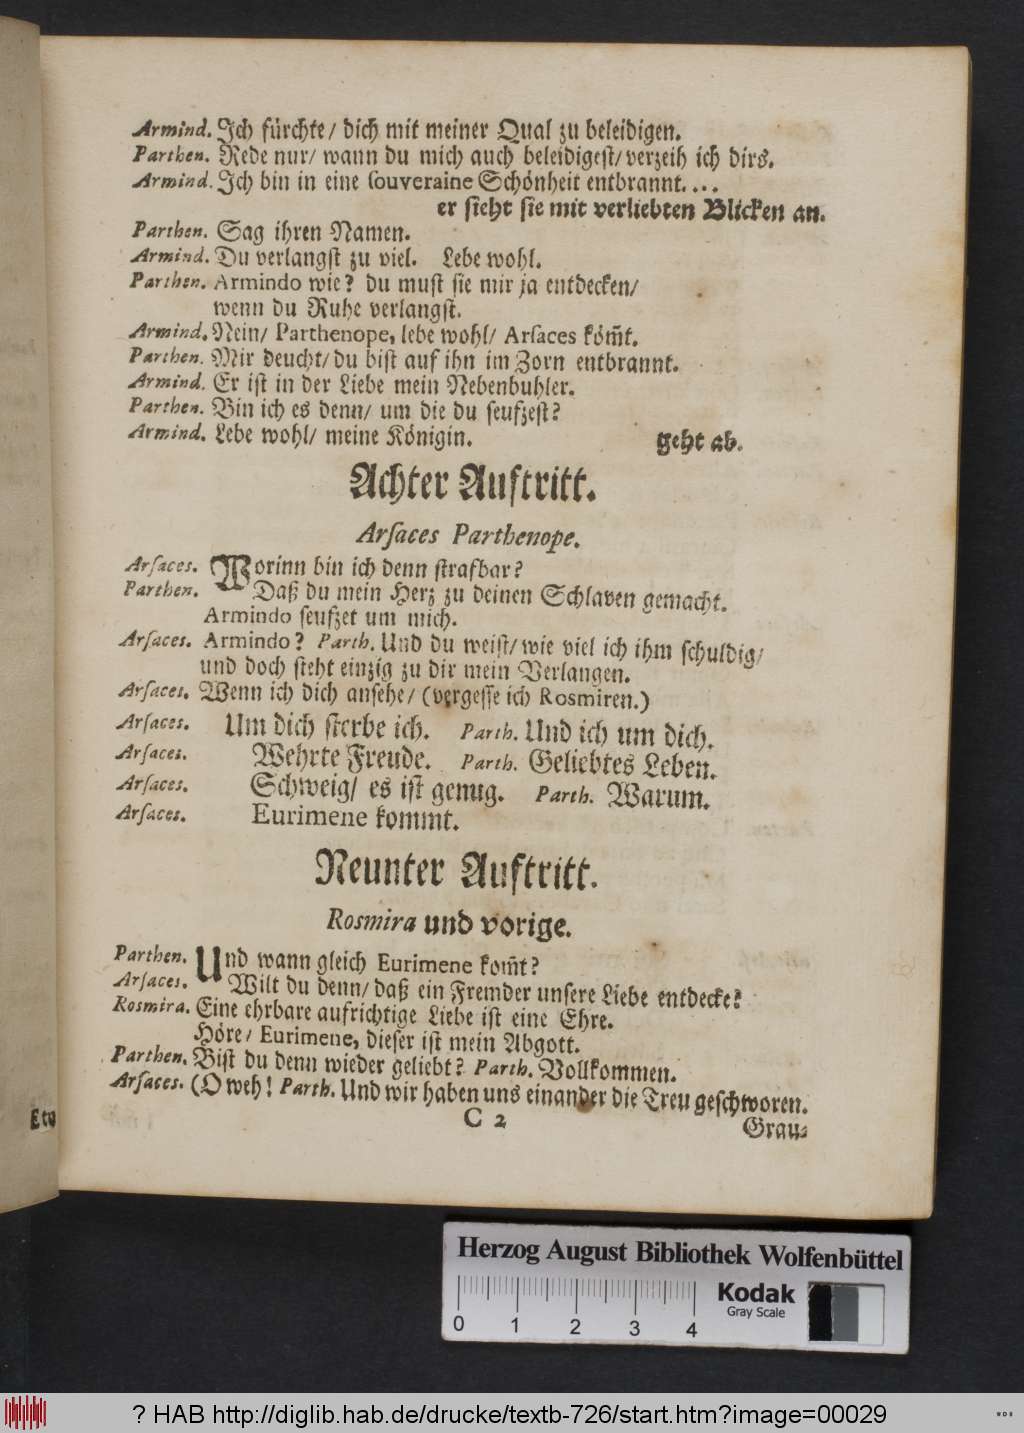 Armind. Ich fürchte/ dich mit meiner Qual zu beleidigen.
Parthen. Rede nur/ wann du mich auch beleidigest/ verzeih ich dirs.
Armind. Ich bin in eine ſouveraine Schönheit entbrannt....
er ſieht ſie mit verliebten Blicken an.
Parthen. Sag ihren Namen.
Armind. Du verlangſt zu viel. Lebe wohl.
Parthen. Armindo wie? du muſt ſie mir ja entdecken/
wenn du Ruhe verlangſt.
Armind. Nein/ Parthenope, lebe wohl/ Arſaces kom̃t.
Parthen. Mir deucht/ du biſt auf ihn im Zorn entbrannt.
Armind. Er iſt in der Liebe mein Nebenbuhler.
Parthen. Bin ich es denn/ um die du ſeufzeſt?
Armind. Lebe wohl/ meine Königin. geht ab.
Achter Auftritt.
Arſaces Parthenope.
Arſaces. Worinn bin ich denn ſtrafbar?
Parthen. Daß du mein Herz zu deinen Schlaven gemacht.
Armindo ſeufzet um mich.
Arſaces. Armindo? Parth. Und du weiſt/ wie viel ich ihm ſchuldig/
und doch ſteht einzig zu dir mein Verlangen.
Arſaces. Wenn ich dich anſehe/ (vergeſſe ich Rosmiren.)
Arſaces. Um dich ſterbe ich. Parth. Und ich um dich.
Arſaces. Wehrte Freude. Parth. Geliebtes Leben.
Arſaces. Schweig/ es iſt genug. Parth. Warum.
Arſaces. Eurimene kommt.
Neunter Auftritt.
Rosmira und vorige.
Parthen. Und wann gleich Eurimene kom̃t?
Arſaces. Wilt du denn/ daß ein Fremder unſere Liebe entdecke?
Rosmira. Eine ehrbare aufrichtige Liebe iſt eine Ehre.
Höre/ Eurimene, dieſer iſt mein Abgott.
Parthen. Biſt du denn wieder geliebt? Parth. Vollkommen.
Arſaces. (O weh! Parth. Und wir haben uns einander die Treu geſchworen.
C 2
Grau⸗
Herzog August Bibliothek Wolfenbüttel
Kodak
Gray Scale
0 1 2 3 4
? HAB http://diglib.hab.de/drucke/textb-726/start.htm?image=00029